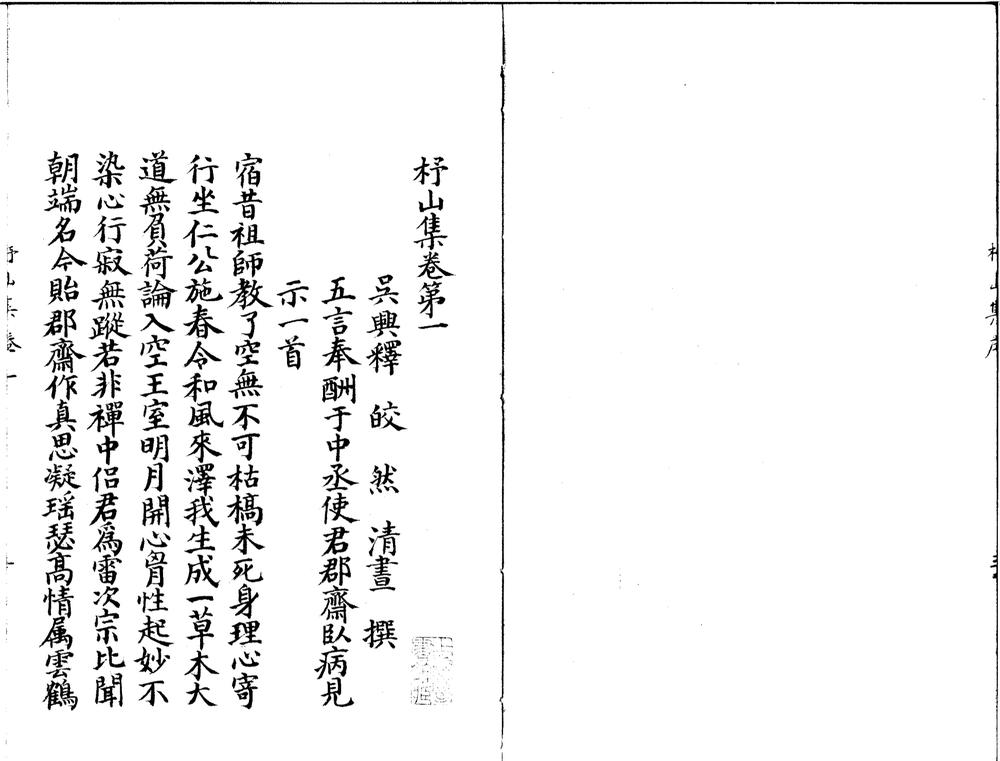 杼山集卷第一
吳興釋皎然清晝撰
五言奉酬于中丞使君郡齋臥病見
示一首
宿昔祖師教了空無不可枯槁未死身理心寄
行坐仁公施春令和風來澤我生成一草木大
道無負荷論入空王室明月開心胷性起妙不
染心行寂無蹤若非禪中侣君為雷次宗比聞
朝端名今貽郡齋作真思凝瑶瑟高情属雲鶴